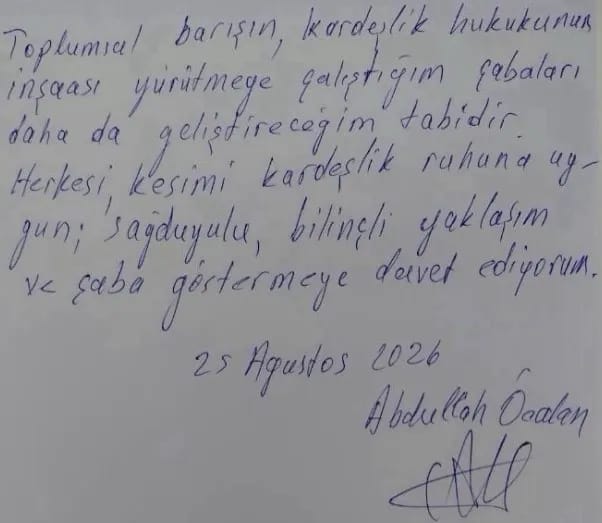 Toplumsal barışın, kardeşlik hukukunun
inşaası yürütmeye çalıştığım çabaları
daha da geliştireceğim tabidir.
Herkesi, kesimi kardeşlik ruhuna uy-
gun; sağduyulu, bilinçli yaklaşım
ve çaba göstermeye davet ediyorum.
25 Agustos 2026
Abdullah Öcalan